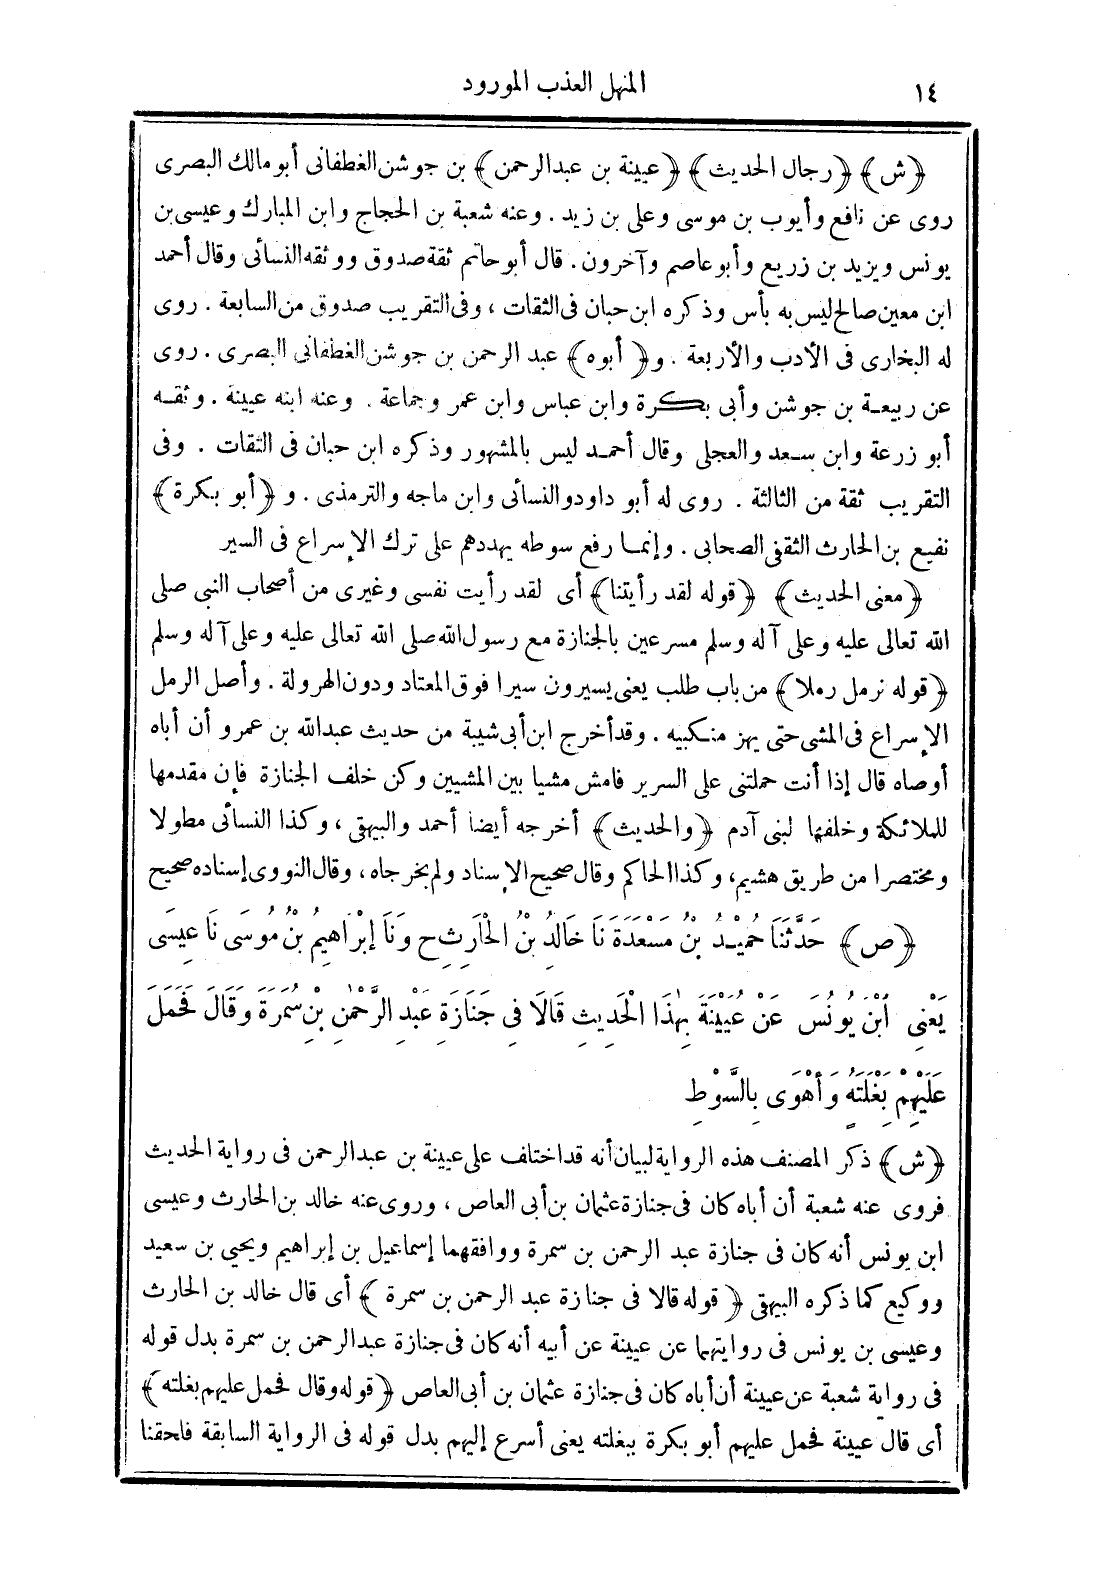 ١٤
المنهل العذب المورود
﴿ش﴾ ﴿رجال الحديث﴾ ﴿عيينة بن عبد الرحمن﴾ بن جوشن الغطفانى أبو مالك البصرى
روى عن نافع وأيوب بن موسى وعلى بن زيد . وعنه شعبة بن الحجاج وابن المبارك وعيسى بن
يونس ويزيد بن زريع وأبو عاصم وآخرون . قال أبو حاتم ثقة صدوق ووثقه النسائى وقال أحمد
ابن معين صالح ليس به بأس وذكره ابن حبان فى الثقات ، وفى التقريب صدوق من السابعة . روى
له البخارى فى الأدب والأربعة . و﴿ أبوه﴾ عبد الرحمن بن جوشن الغطفانى البصرى . روى
عن ربيعة بن جوشن وأبى بكرة وابن عباس وابن عمر وجماعة . وعنه ابنه عيينة . وثقه
أبو زرعة وابن سعد والعجلى وقال أحمد ليس بالمشهور وذكره ابن حبان فى الثقات . وفى
التقريب ثقة من الثالثة . روى له أبو داود والنسائى وابن ماجه والترمذى . و﴿أبو بكرة﴾
نفيع بن الحارث الثقفى الصحابى . وإنما رفع سوطه يهددهم على ترك الإسراع فى السير
﴿معنى الحديث﴾ ﴿قوله لقد رأيتنا﴾ أى لقد رأيت نفسى وغيرى من أصحاب النبى صلى
الله تعالى عليه وعلى آله وسلم مسرعين بالجنازة مع رسول الله صلى الله تعالى عليه وعلى آله وسلم
﴿قوله نرمل رملا﴾ من باب طلب يعنى يسيرون سيرا فوق المعتاد ودون الهرولة . وأصل الرمل
الإسراع فى المشى حتى يهز منكبيه . وقد أخرج ابن أبى شيبة من حديث عبد الله بن عمرو أن أباه
أوصاه قال إذا أنت حملتنى على السرير فامش مشيا بين المشيين وكن خلف الجنازة فإن مقدمها
للملائكة وخلفها لبنى آدم ﴿والحديث﴾ أخرجه أيضا أحمد والبيهقى ، وكذا النسائى مطولا
ومختصرا من طريق هشيم، وكذا الحاكم وقال صحيح الإسناد ولم يخرجاه ، وقال النووى إسناده صحيح
﴿ص﴾ حَدَّثَنَا حُمَيْدُ بْنُ مَسْعَدَةَ نَا خَالِدُ بْنُ الْحَارِثِ ح وَنَا إِبْرَاهِيمُ بْنُ مُوسَى نَا عِيسَى
يَعْنِى ابْنَ يُونُسَ عَنْ عُيَيْنَةَ بِهٰذَا الْحَدِيثِ قَالَا فِى جَنَازَةِ عَبْدِ الرَّحْمٰنِ بْنِ سَمُرَةَ وَقَالَ فَحَمَلَ
عَلَيْهِمْ بَغْلَتَهُ وَأَهْوَى بِالسَّوْطِ
﴿ش﴾ ذكر المصنف هذه الرواية لبيان أنه قد اختلف على عيينة بن عبد الرحمن فى رواية الحديث
فروى عنه شعبة أن أباه كان فى جنازة عثمان بن أبى العاص ، وروى عنه خالد بن الحارث وعيسى
ابن يونس أنه كان فى جنازة عبد الرحمن بن سمرة ووافقهما إسماعيل بن إبراهيم ويحيى بن سعيد
ووكيع كما ذكره البيهقى ﴿ قوله قالا فى جنازة عبد الرحمن بن سمرة ﴾ أى قال خالد بن الحارث
وعيسى بن يونس فى روايتهما عن عيينة عن أبيه أنه كان فى جنازة عبد الرحمن بن سمرة بدل قوله
فى رواية شعبة عن عيينة أن أباه كان فى جنازة عثمان بن أبى العاص ﴿قوله وقال فحمل عليهم بغلته﴾
أى قال عيينة فحمل عليهم أبو بكرة ببغلته يعنى أسرع إليهم بدل قوله فى الرواية السابقة فلحقنا